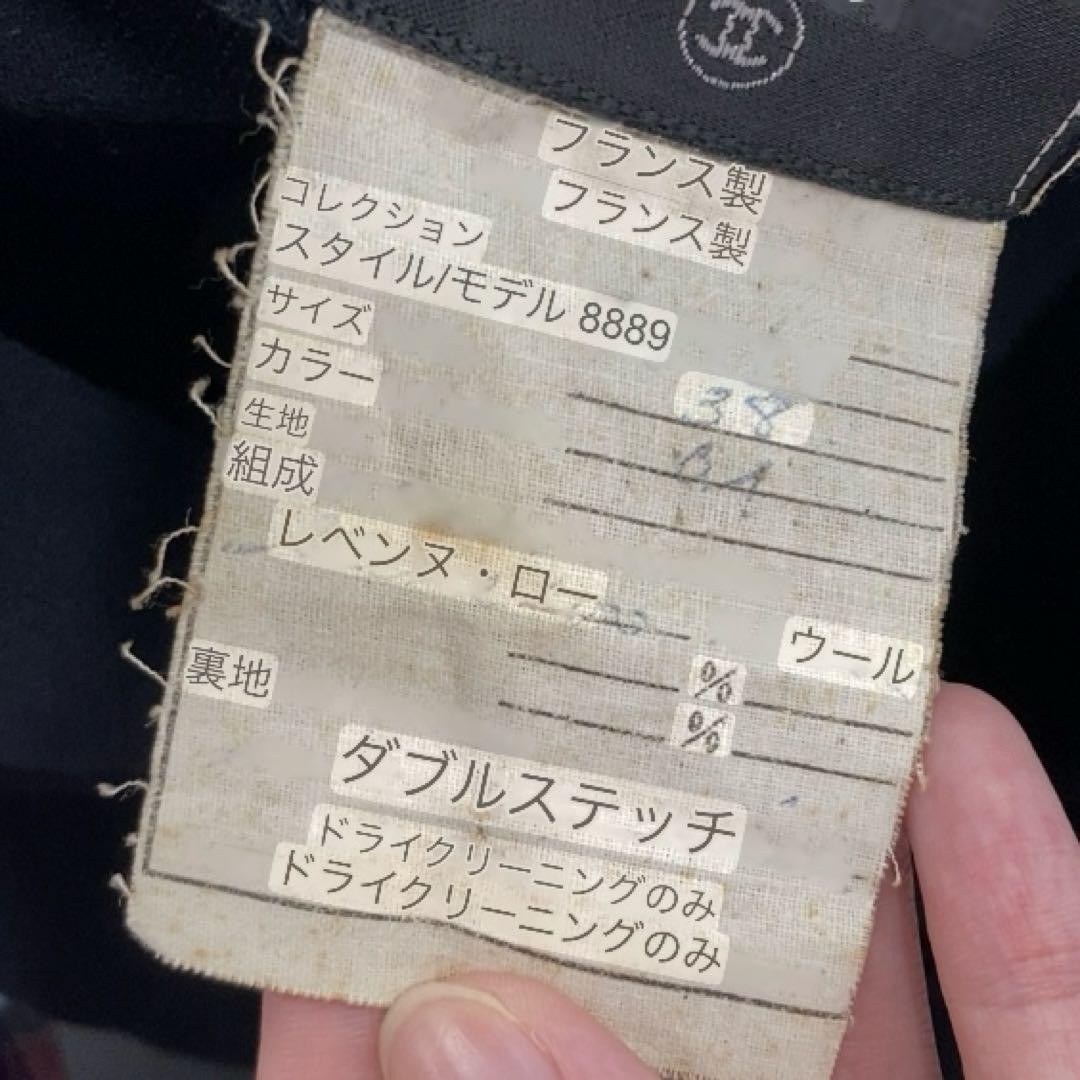 フランス製
フランス製
コレクション
スタイル/モデル 8889
サイズ
38
カラー
生地
組成
レベンヌ・ロー
ウール
%
裏地
%
ダブルステッチ
ドライクリーニングのみ
ドライクリーニングのみ